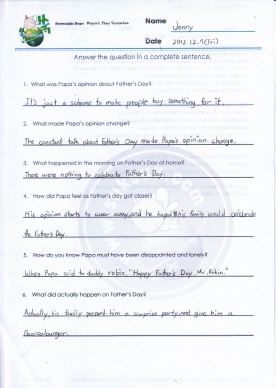 Berenstain Bears Papa's Day Surprise
Name Jenny
Date 2012.12.7(Fri)
Answer the question in a complete sentence.
1. What was Papa's opinion about Father's Day?
It's just a scheme to make people buy something for it.
2. What made Papa's opinion change?
The constant talk about Father's Day made Papa's opinion change.
3. What happened in the morning on Father's Day at home?
There were nothing to celebrate Father's Day.
4. How did Papa feel as Father's day got closer?
His opinion starts to wear away, and he hoped his family would celebrate
the Father's Day.
5. How do you know Papa must have been disappointed and lonely?
When Papa said to daddy robin, "Happy Father's Day, Mr. Robin."
6. What did actually happen on Father's Day?
Actually, his family present him a surprise party, and give him a
Bearsaburger.